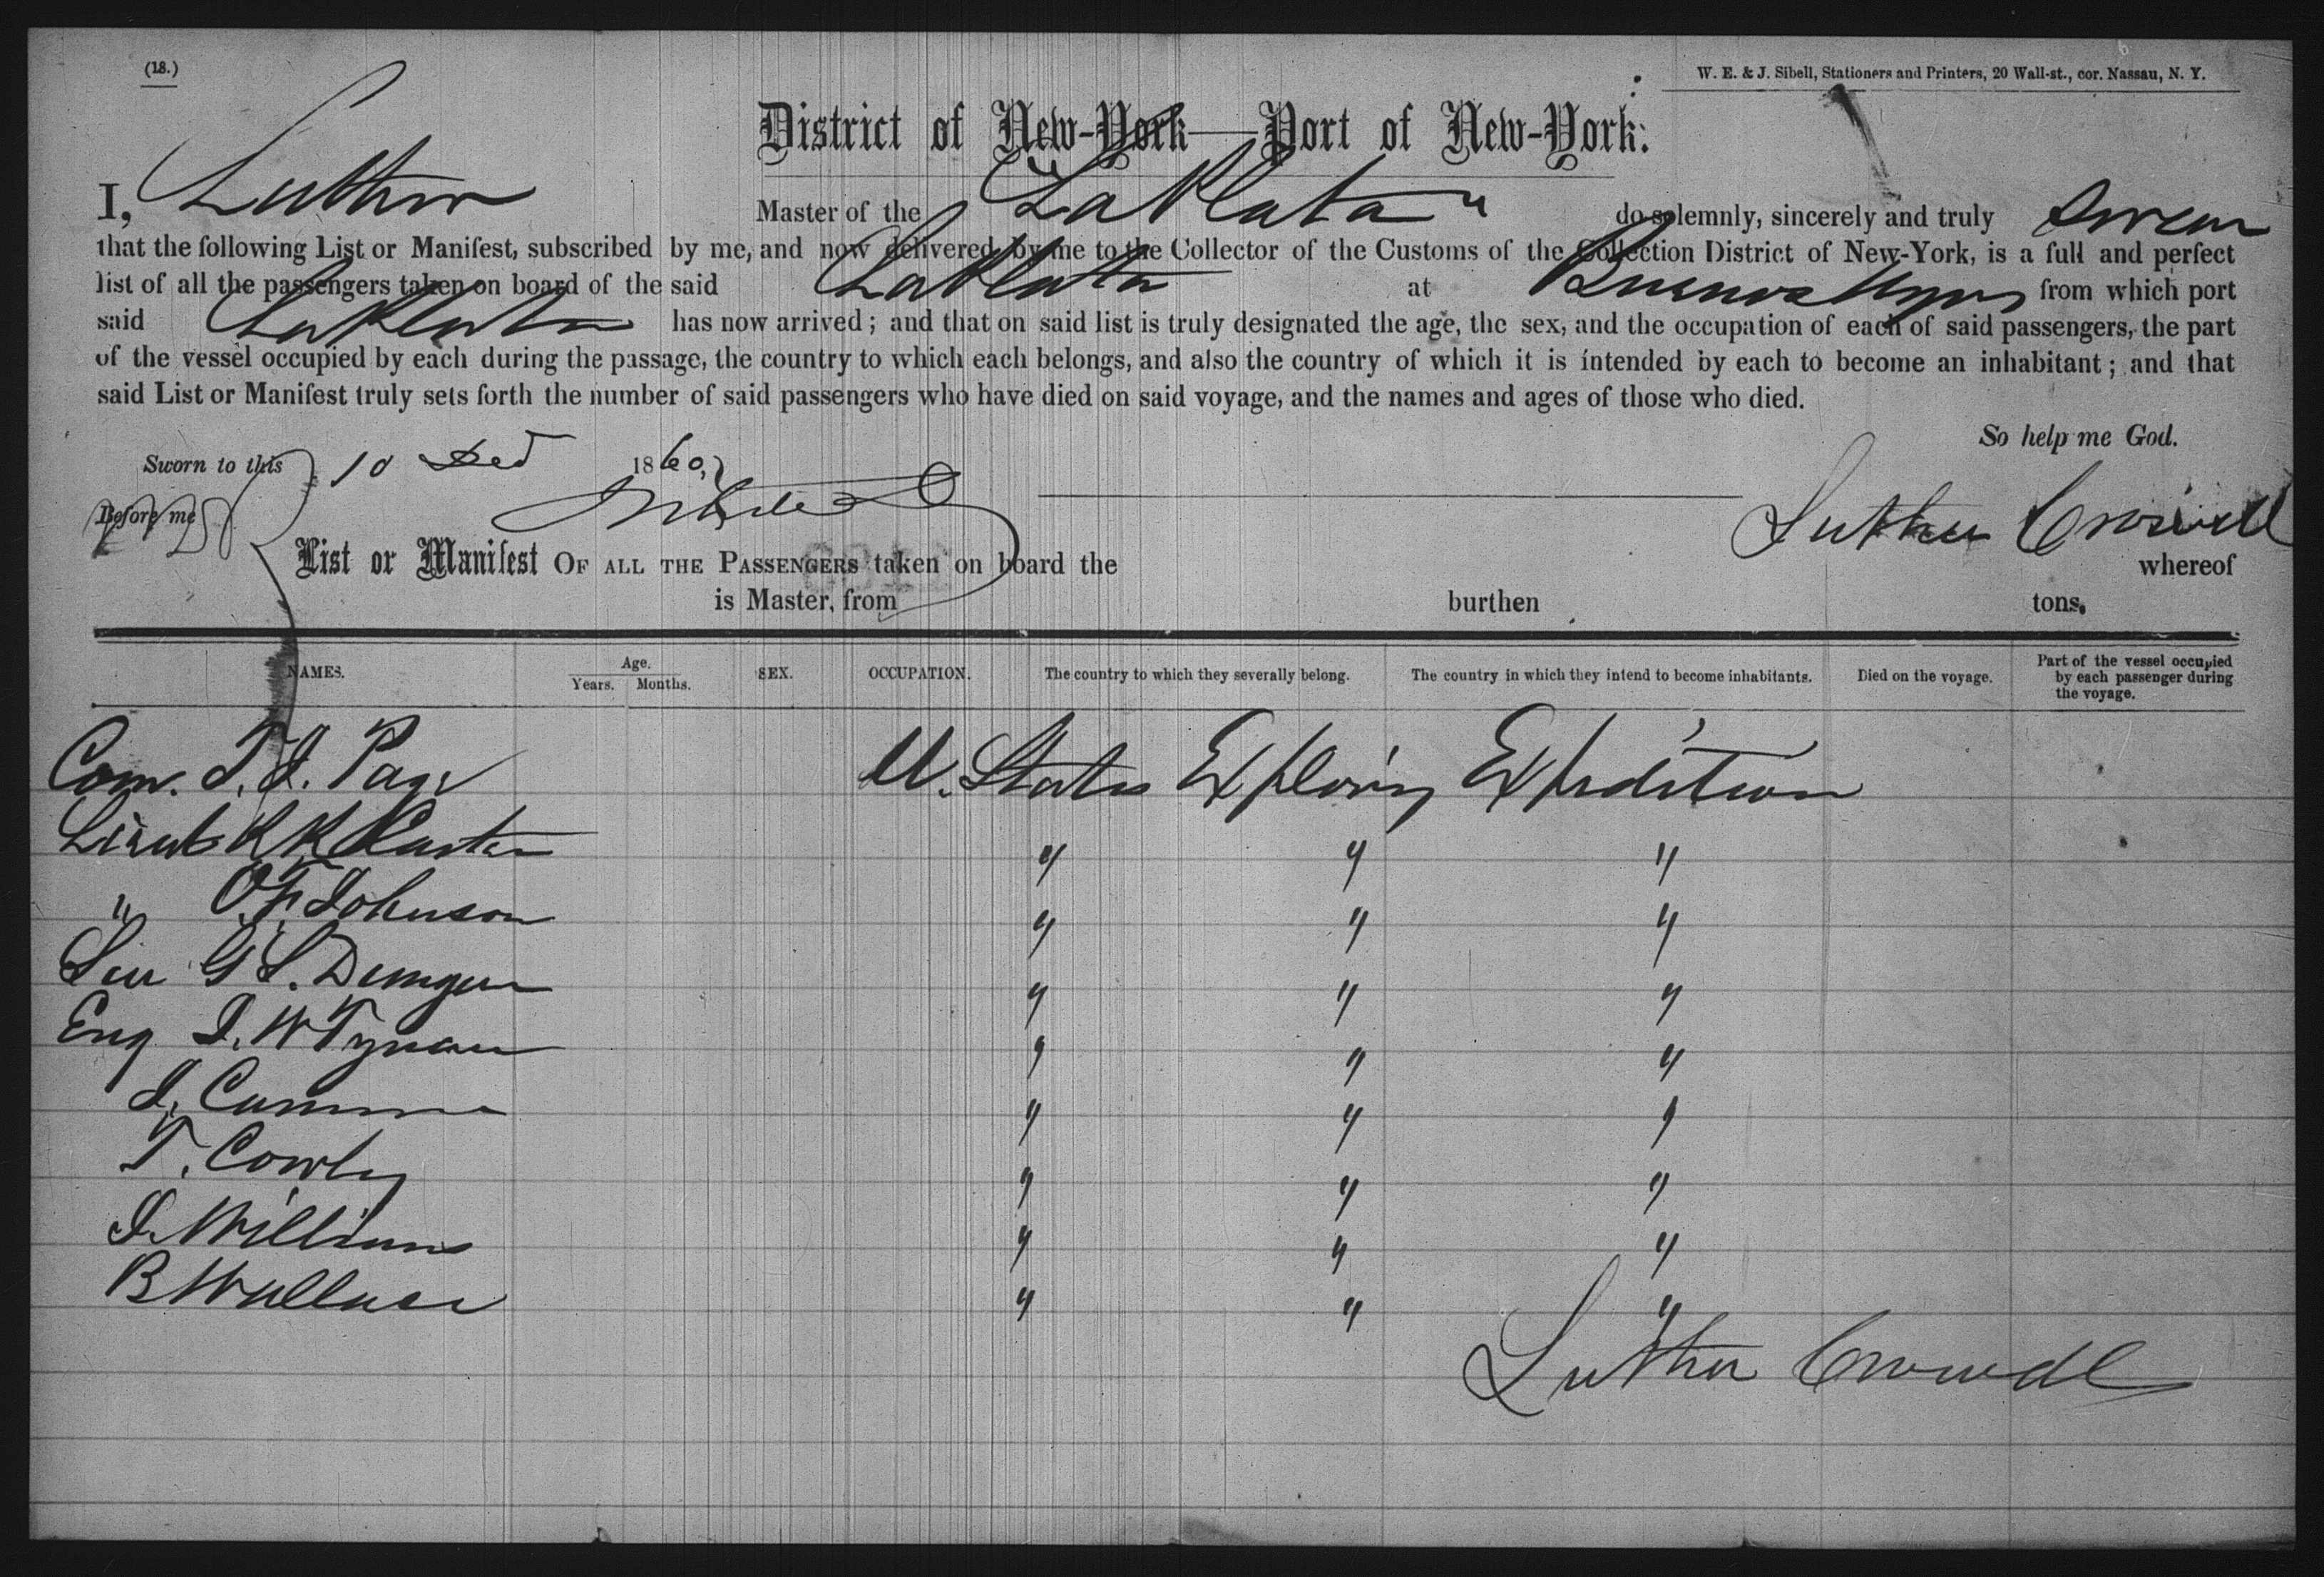 (18.)
W. E. & J. Sibell, Stationers and Printers, 20 Wall-st., cor. Nassau, N. Y.
District of New-York—Port of New-York:
I, Luther Master of the "La Plata" do solemnly, sincerely and truly swear
that the following List or Manifest, subscribed by me, and now delivered by me to the Collector of the Customs of the Collection District of New-York, is a full and perfect
list of all the passengers taken on board of the said La Plata at Buenos Ayres from which port
said La Plata has now arrived; and that on said list is truly designated the age, the sex, and the occupation of each of said passengers, the part
of the vessel occupied by each during the passage, the country to which each belongs, and also the country of which it is intended by each to become an inhabitant; and that
said List or Manifest truly sets forth the number of said passengers who have died on said voyage, and the names and ages of those who died.
So help me God.
Sworn to this 10 Dec 1860,
Before me
Luther Crowell
List or Manifest OF ALL THE PASSENGERS taken on board the whereof
is Master, from burthen tons,
NAMES. Age. Years. Months. SEX. OCCUPATION. The country to which they severally belong. The country in which they intend to become inhabitants. Died on the voyage. Part of the vessel occupied by each passenger during the voyage.
Com. T. J. Page U. States Exploring Expedition
Lieut R R Carter " " "
" O. F. Johnson " " "
G S. " " "
Eng J. W Tynan " " "
J. " " "
T. Cowley " " "
J. Williams " " "
B Wallace " " "
Luther Crowell